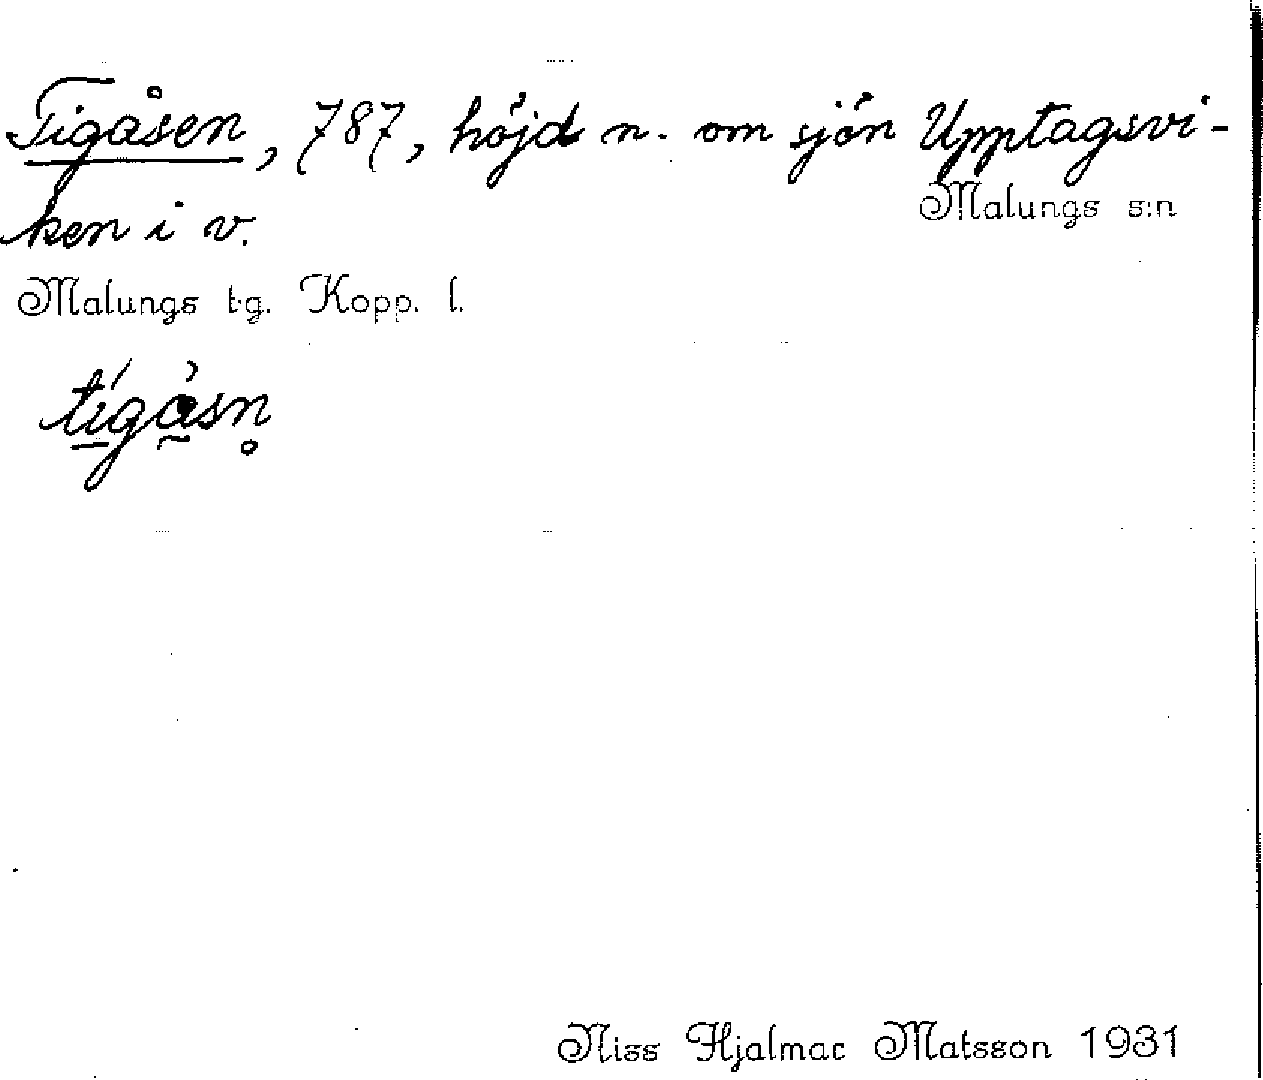 Tigåsen, 787, höjd n. om sjön Upptagsvi-
Malungs s:n
ken i v.
Malungs tg. Kopp. l.
tígàsn̥
Niss Hjalmar Matsson 1931